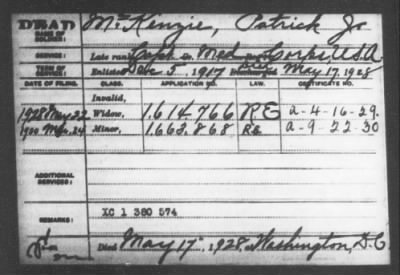 DEAD
NAME OF SOLDIER: McKenzie, Patrick Jr
SERVICE: Late rank Capt Med Corps, U.S.A
TERM OF SERVICE: Enlisted Dec 5, 1917 Discharged May 17, 1928
DATE OF FILING. CLASS. APPLICATION NO. LAW. CERTIFICATE NO.
Invalid,
1928 May 22 Widow, 1.614.766 R.E a-4-16-29.
Minor, 1.663.868 R.E. a-9 22-30
ADDITIONAL SERVICES:
REMARKS: XC 1 380 574
Died May 17, 1928, Washington, D.C.